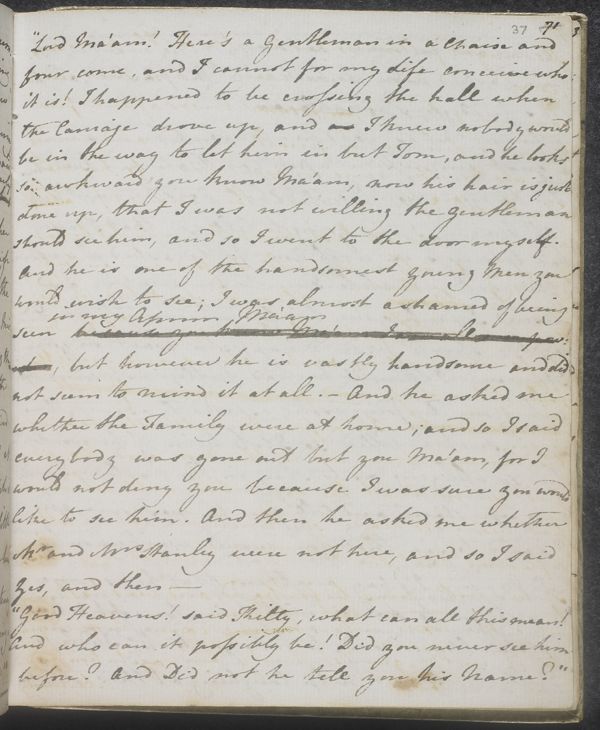 37 71
"Lord Ma'am! Here's a Gentleman in a Chaise and
four come, and I cannot for my Life conceive who
it is! I happened to be crossing the hall when
the Carriage drove up, and I knew nobody would
be in the way to let him in but Tom, and he looks
so awkward you know Ma'am, now his hair is just
done up, that I was not willing the gentleman
should see him, and so I went to the door myself.
And he is one of the handsomest young Men you
would wish to see; I was almost ashamed of being
in my Apron, Ma'am
seen
, but however he is vastly handsome and did
not seem to mind it at all. — And he asked me
whether the Family were at home; and so I said
everybody was gone out but you Ma'am, for I
would not deny you because I was sure you would
like to see him. And then he asked me whether
Mr and Mrs Stanley were not here, and so I said
Yes, and then —
"Good Heavens! said Kitty, what can all this mean!
And who can it possibly be! Did you never see him
before? And Did not he tell you his Name?"